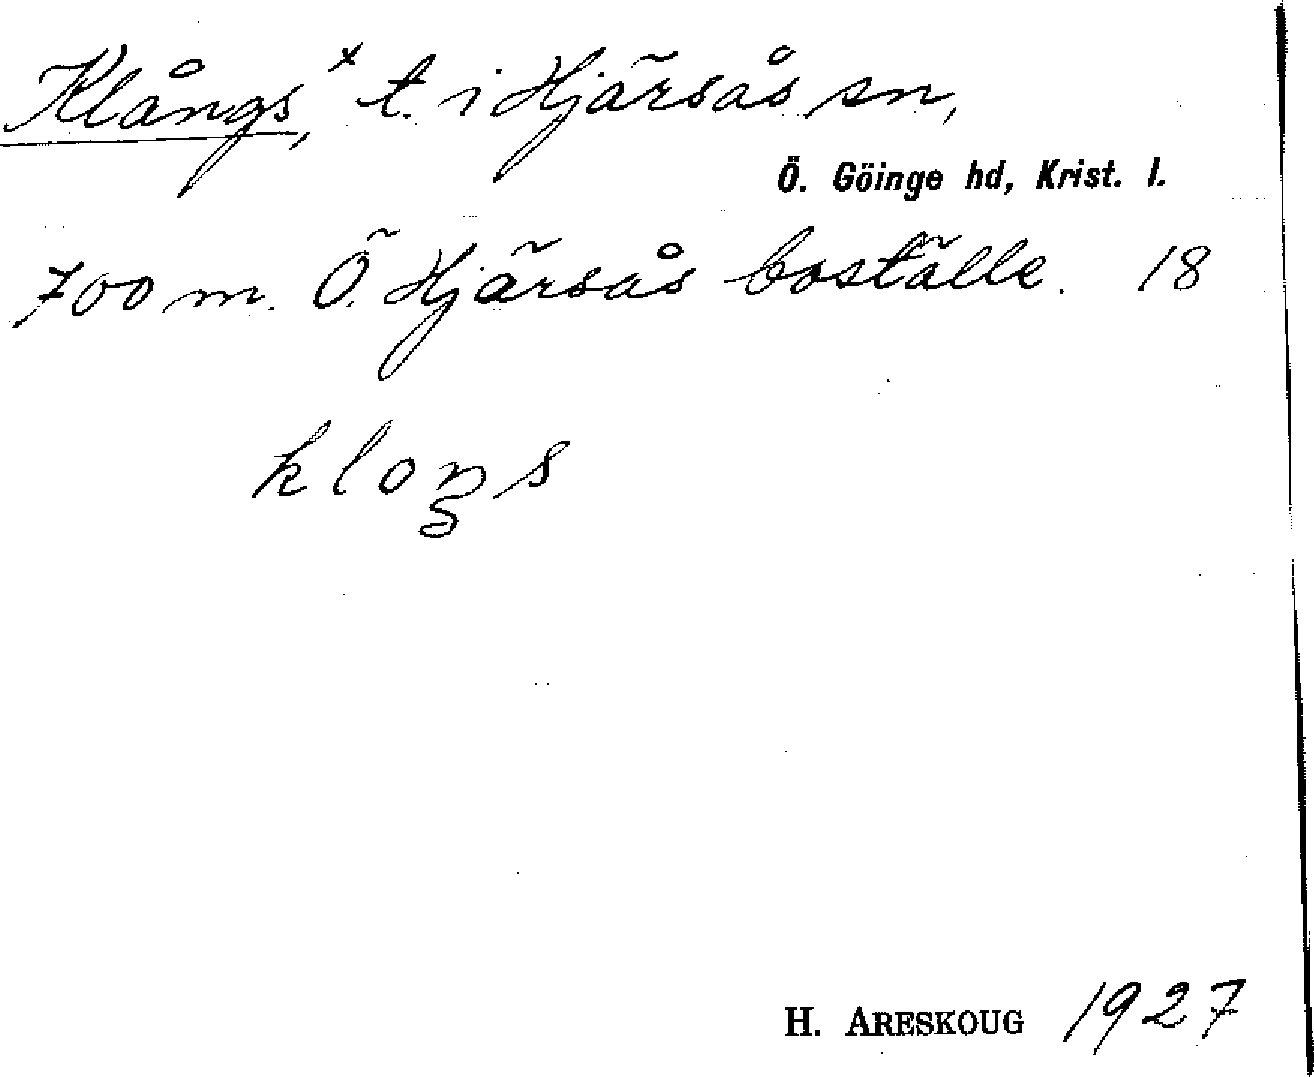 Klångs,ˣ t. i Hjärsås sn,
Ö. Göinge hd, Krist. l.
700 m. Ö. Hjärsås boställe. 18
kloŋs
H. ARESKOUG 1927